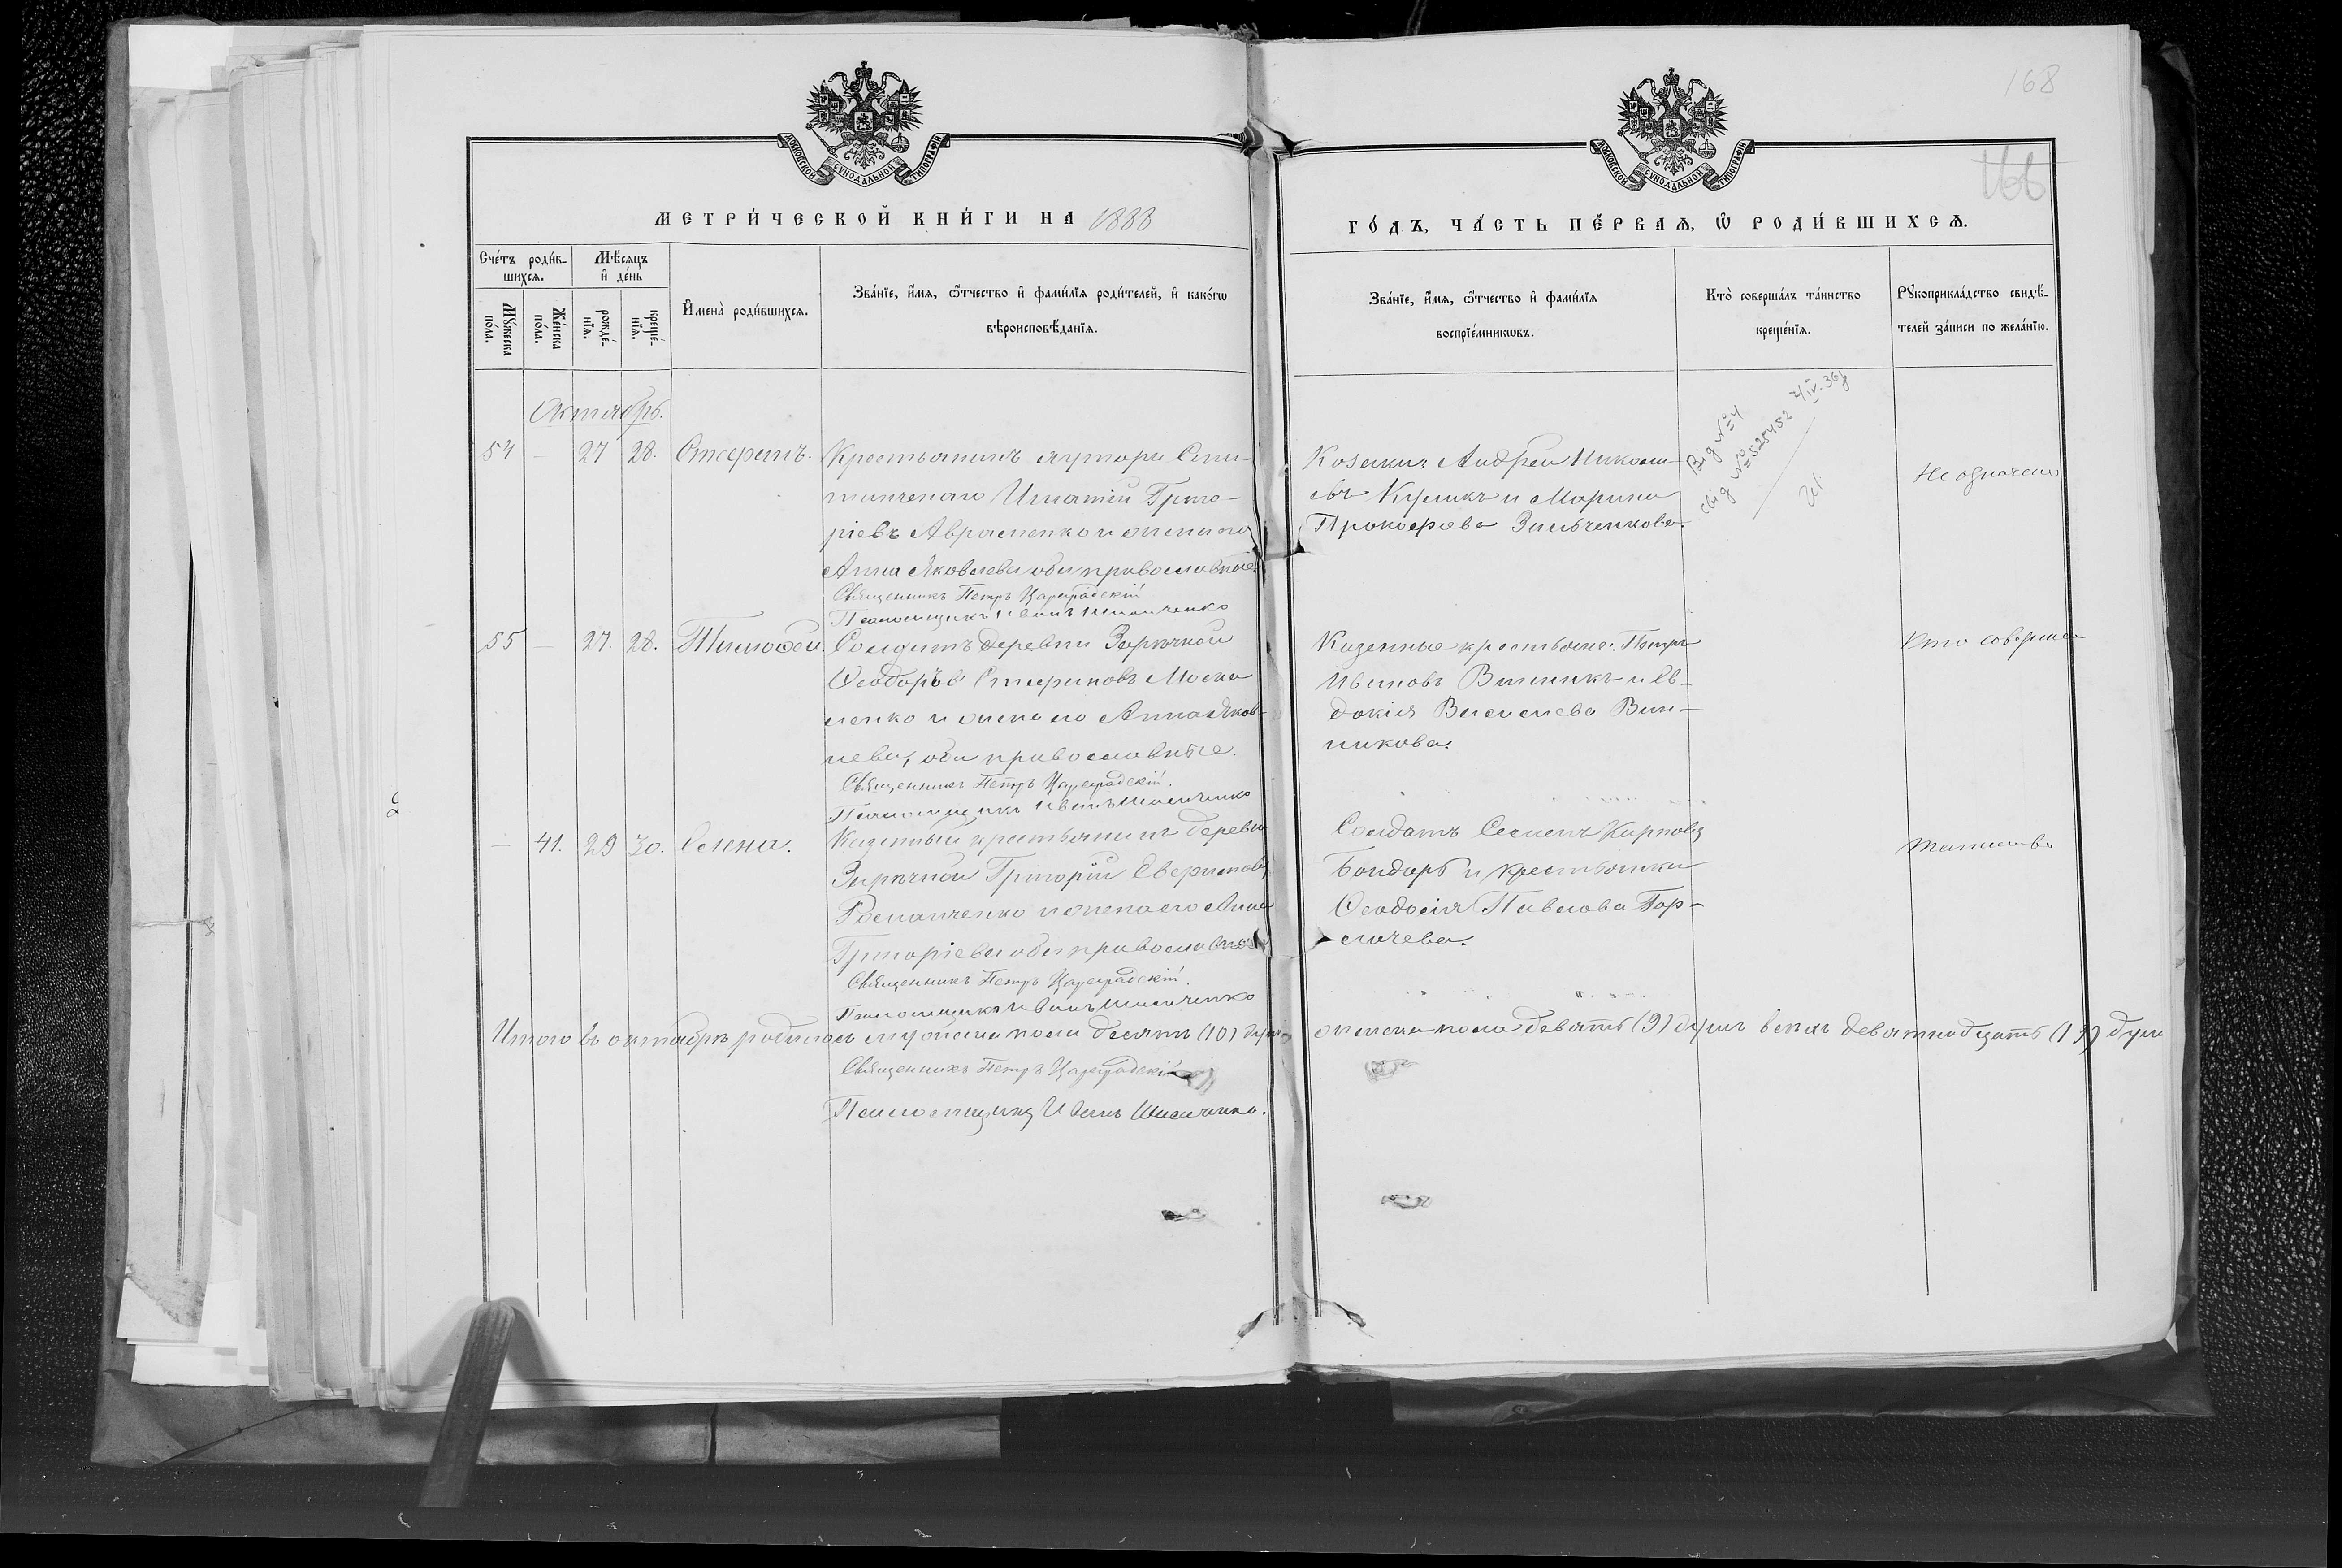 168
166
МОСКОВСКОЙ СУНОДАЛЬНОЙ ТИПОГРАФІИ
МОСКОВСКОЙ СУНОДАЛЬНОЙ ТИПОГРАФІИ
МЕТРИ́ЧЕСКОЙ КНИ́ГИ НА 1888
ГО́ДЪ, ЧА́СТЬ ПЕ́РВАЯ, Ѽ РОДИ́ВШИХСЯ.
Сче́тъ роди́в-
шихся.
Мѣ́сяцъ
и де́нь
Му́жеска
по́ла.
Же́нска
по́ла.
рожде́-
нїя.
креще́-
нїя.
И҆мена̀ роди́вшихся.
Зва́нїе, и҆́мя, ѻ҆́тчество и҆ фами́лїя роди́телей, и҆ како́гѡ
вѣроисповѣ́данїя.
Зва́нїе, и҆́мя, ѻ҆́тчество и҆ фами́лїя
воспрїе́мникѡвъ.
Кто̀ соверша́лъ та́инство
креще́нїя.
Рꙋкоприкла́дство свидѣ́-
телей за́писи по жела́нїю.
Октябрь.
54 – 27 28. Стефанъ. Крестьянинъ хутора
Игнатій Григо-
ріевъ Авраменко и жена его
Анна Яковлева оба православные
Священникъ Петръ Цареградскій
Псаломщикъ Иванъ
Козакъ Андрей Никола-
евъ Куликъ и Марина
Прокофьева Зинченкова.
Від №4
свід №525452 4/IV. 36 г
Не означено
55 – 27. 28. Тимофей. Солдатъ деревни Заречной
Ѳеодоръ Стефановъ Моска-
ленко и жена его Анна Яков-
лева, оба православные.
Священникъ Петръ Цареградскій.
Псаломщикъ Иванъ
Казенные крестьяне: Петръ
Ивановъ Винникъ и Ев-
докія Васильева Вин-
никова.
Кто соверша
– 41. 29 30. Елена. Казенный крестьянинъ деревни
Заречной Григорій
Романченко и жена его Анна
Григоріева оба православные
Священникъ Петръ Цареградскій.
Псаломщикъ Иванъ
Солдатъ Семенъ Карповъ
Бондарь и крестьянка
Ѳеодосія Павлова Гор-
лачева.
таинство
Итого въ октябре родилось мужеска пола десять (10) душъ, женска пола девять (9) душъ всехъ девятнадцать (19) душъ
Священникъ Петръ Цареградскій
Псаломщикъ Иванъ